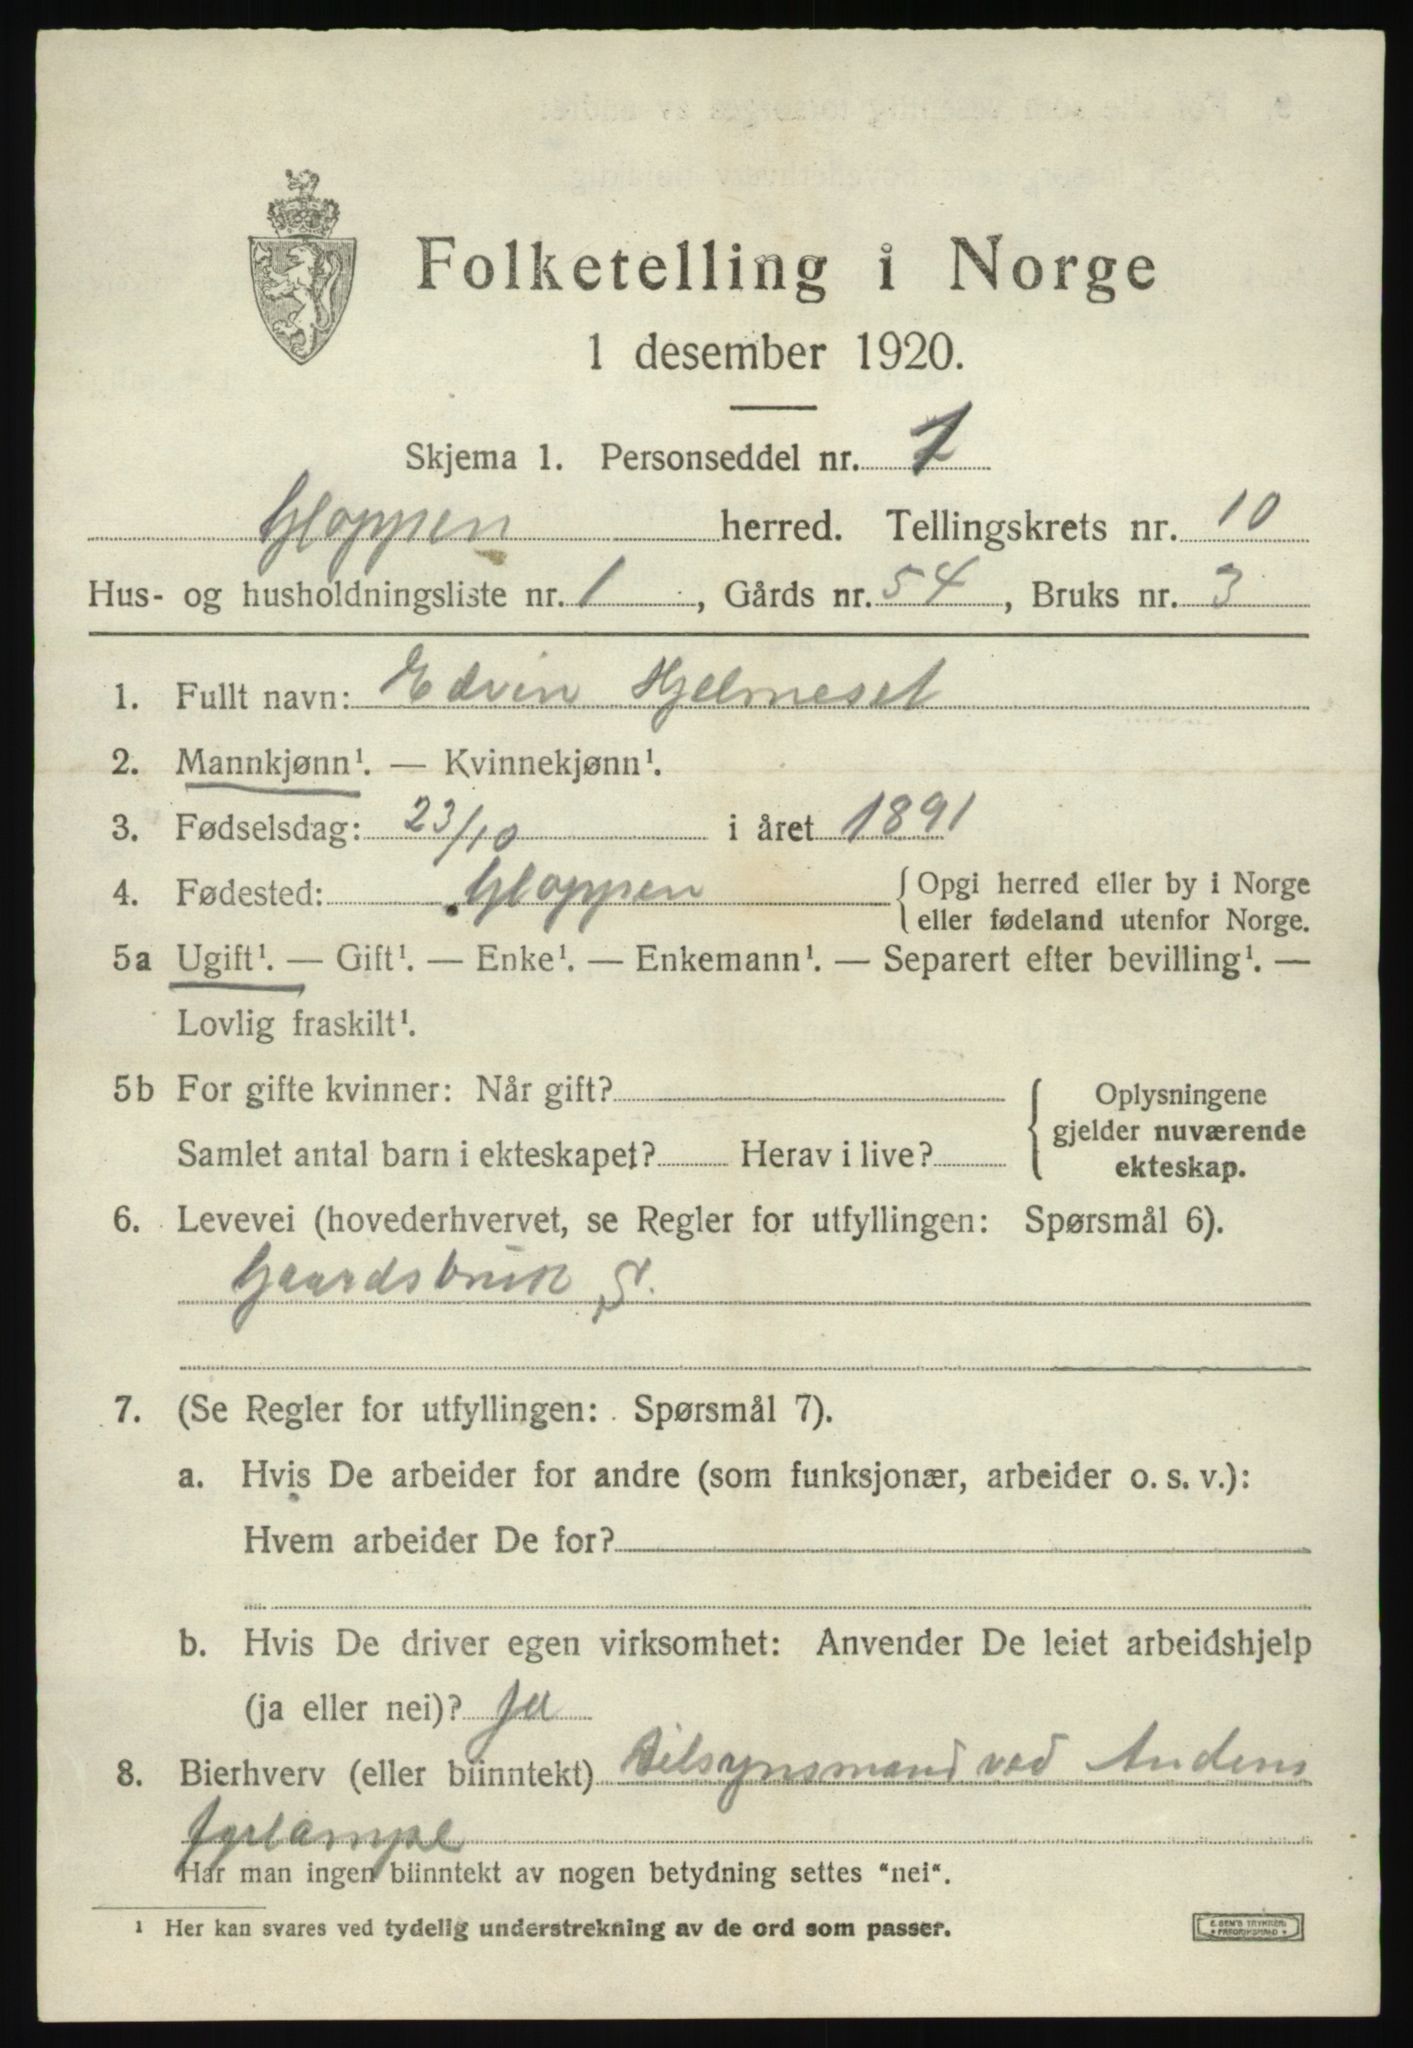 Folketelling i Norge
1 desember 1920.
Skjema 1. Personseddel nr. 1
Gloppen herred. Tellingskrets nr. 10
Hus- og husholdningsliste nr. 1, Gårds nr. 54, Bruks nr. 3
1. Fullt navn: Edvin Hjelmeset
2. Mannkjønn¹. — Kvinnekjønn¹.
3. Fødselsdag: 23/10 i året 1891
4. Fødested: Gloppen { Opgi herred eller by i Norge
eller fødeland utenfor Norge.
5a Ugift¹. — Gift¹. — Enke¹. — Enkemann¹. — Separert efter bevilling¹. —
Lovlig fraskilt¹.
5b For gifte kvinner: Når gift? { Oplysningene
gjelder nuværende
Samlet antal barn i ekteskapet? Herav i live?
ekteskap.
6. Levevei (hovederhvervet, se Regler for utfyllingen: Spørsmål 6).
Gaardsbruk S.
7. (Se Regler for utfyllingen: Spørsmål 7).
a. Hvis De arbeider for andre (som funksjonær, arbeider o. s. v.):
Hvem arbeider De for?
b. Hvis De driver egen virksomhet: Anvender De leiet arbeidshjelp
(ja eller nei)? ja
8. Bierhverv (eller biinntekt) Tilsynsmand ved
Har man ingen biinntekt av nogen betydning settes "nei".
¹ Her kan svares ved tydelig understrekning av de ord som passer.